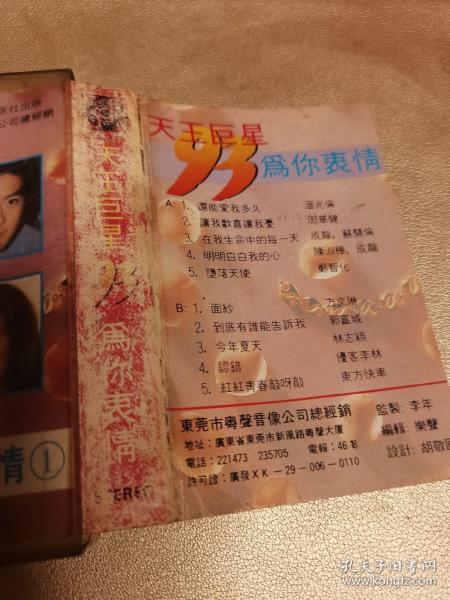 版社出版
公司總經銷
情①
天王巨星
93
為你衷情
STEREO
天王巨星
93 為你衷情
A: 1. 還能愛我多久 溫兆倫
2. 讓我歡喜讓我憂 周華健
3. 在我生命中的每一天 成龍,蘇慧倫
4. 明明白白我的心 陳淑樺,成龍
5. 墮落天使 鄭智化
B: 1. 面紗 方文琳
2. 到底有誰能告訴我 郭富城
3. 今年夏天 林志穎
4. 認錯 優客李林
5. 紅紅青春敲呀敲 東方快車
東莞市粵聲音像公司總經銷
地址:廣東省東莞市新風路粵聲大廈
電話:221473 235705 電報:4618
許可證:廣發XK-29-006-0110
監製:李年
編輯:樂聲
設計:胡敬國
孔夫子旧书网
www.kongfz.com